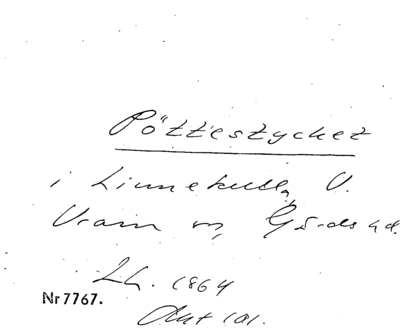 Pöttestycket
i Linnekulla, V.
Vram sn, Gärds hd.
Lh. 1864
Nr 7767.
Akt 101.